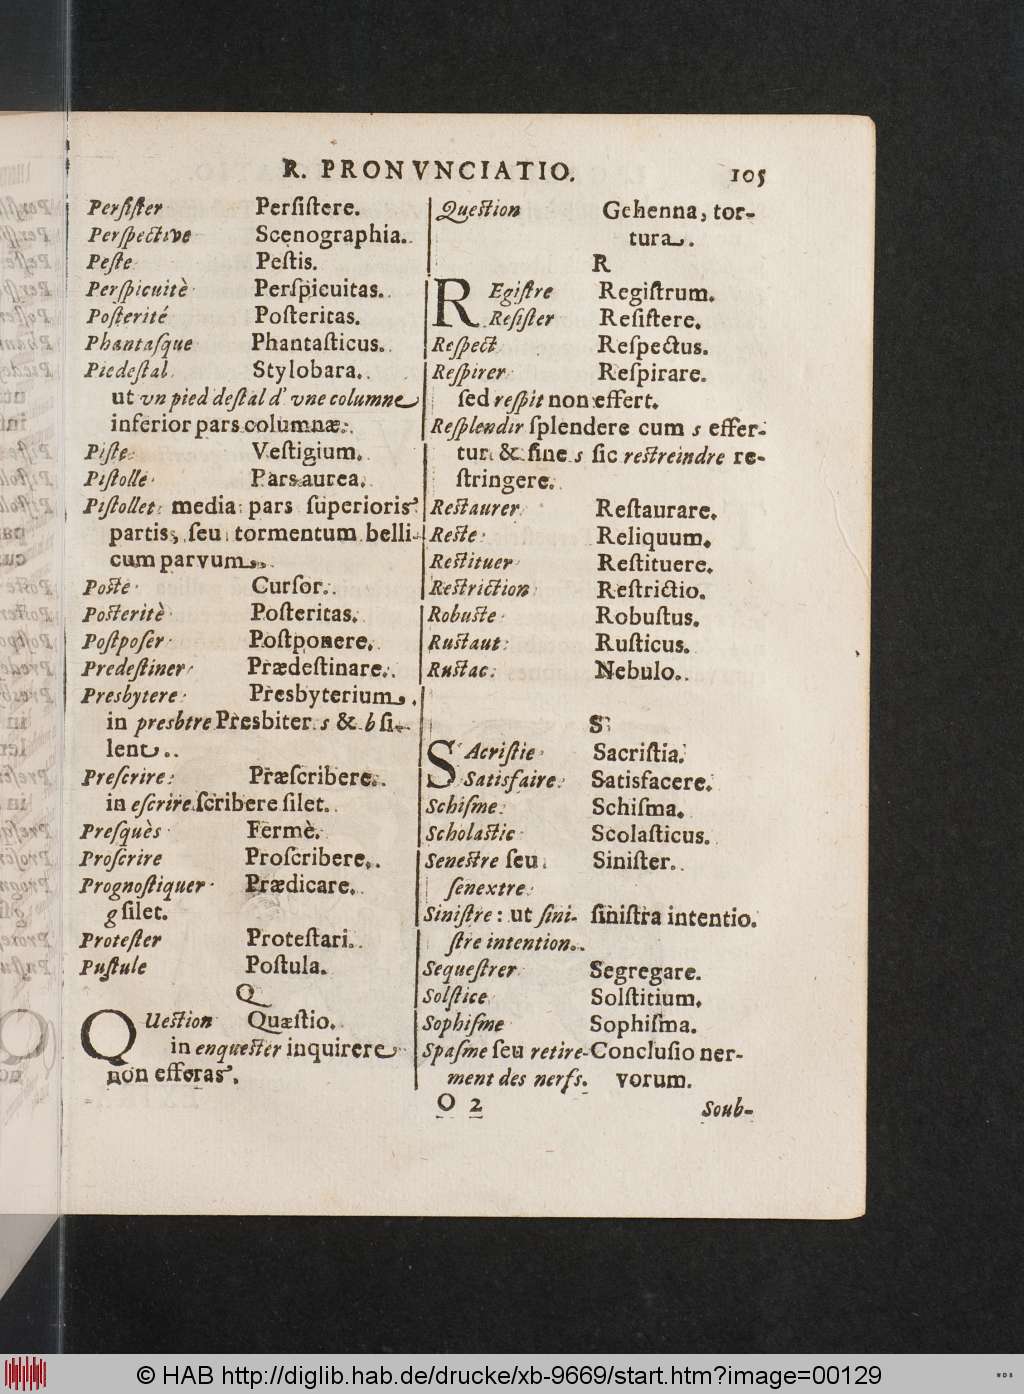 R. PRONVNCIATIO. 105
Perſiſter Perſiſtere.
Perſpective Scenographia.
Peſte Peſtis.
Perſpicuitè Perſpicuitas.
Poſterité Poſteritas.
Phantaſque Phantaſticus.
Piedeſtal Stylobara.
ut vn pied deſtal d' vne columne
inferior pars columnæ.
Piſte Veſtigium.
Piſtolle Pars aurea.
Piſtollet: media pars ſuperioris
partis, ſeu tormentum belli-
cum parvum.
Poſte Curſor.
Poſteritè Poſteritas.
Poſtpoſer Poſtponere.
Predeſtiner Prædeſtinare.
Presbytere Presbyterium.
in presbtre Presbiter s & b ſi-
lent.
Preſcrire Præſcribere.
in eſcrire ſcribere ſilet.
Preſquès Fermè.
Proſcrire Proſcribere.
Prognoſtiquer Prædicare.
g ſilet.
Proteſter Proteſtari.
Puſtule Poſtula.
Q
QUeſtion Quæſtio.
in enqueſter inquirere
non efferas.
Queſtion Gehenna, tor-
tura.
R
REgiſtre Regiſtrum.
Reſiſter Reſiſtere.
Reſpect Reſpectus.
Reſpirer Reſpirare.
ſed reſpit non effert.
Reſplendir ſplendere cum s effer-
tur & ſine s ſic reſtreindre re-
ſtringere.
Reſtaurer Reſtaurare.
Reſte Reliquum.
Reſtituer Reſtituere.
Reſtriction Reſtrictio.
Robuſte Robuſtus.
Ruſtaut Ruſticus.
Ruſtac Nebulo.
S
SAcriſtie Sacriſtia.
Satisfaire Satisfacere.
Schiſme Schiſma.
Scholaſtic Scolaſticus.
Seneſtre ſeu Siniſter.
ſenextre
Siniſtre: ut ſini- ſiniſtra intentio.
ſtre intention.
Sequeſtrer Segregare.
Solſtice Solſtitium.
Sophiſme Sophiſma.
Spaſme ſeu retire- Concluſio ner-
ment des nerfs. vorum.
O 2 Soub-
© HAB http://diglib.hab.de/drucke/xb-9669/start.htm?image=00129